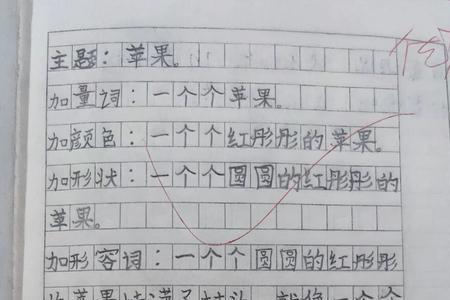 主题：苹果。
加量词：一个个苹果。
加颜色：一个个红彤彤的苹果。
加形状：一个个圆圆的红彤彤的
苹果。
加形容词：一个个圆圆的红彤彤
的苹果挂满了枝头，就像一个个